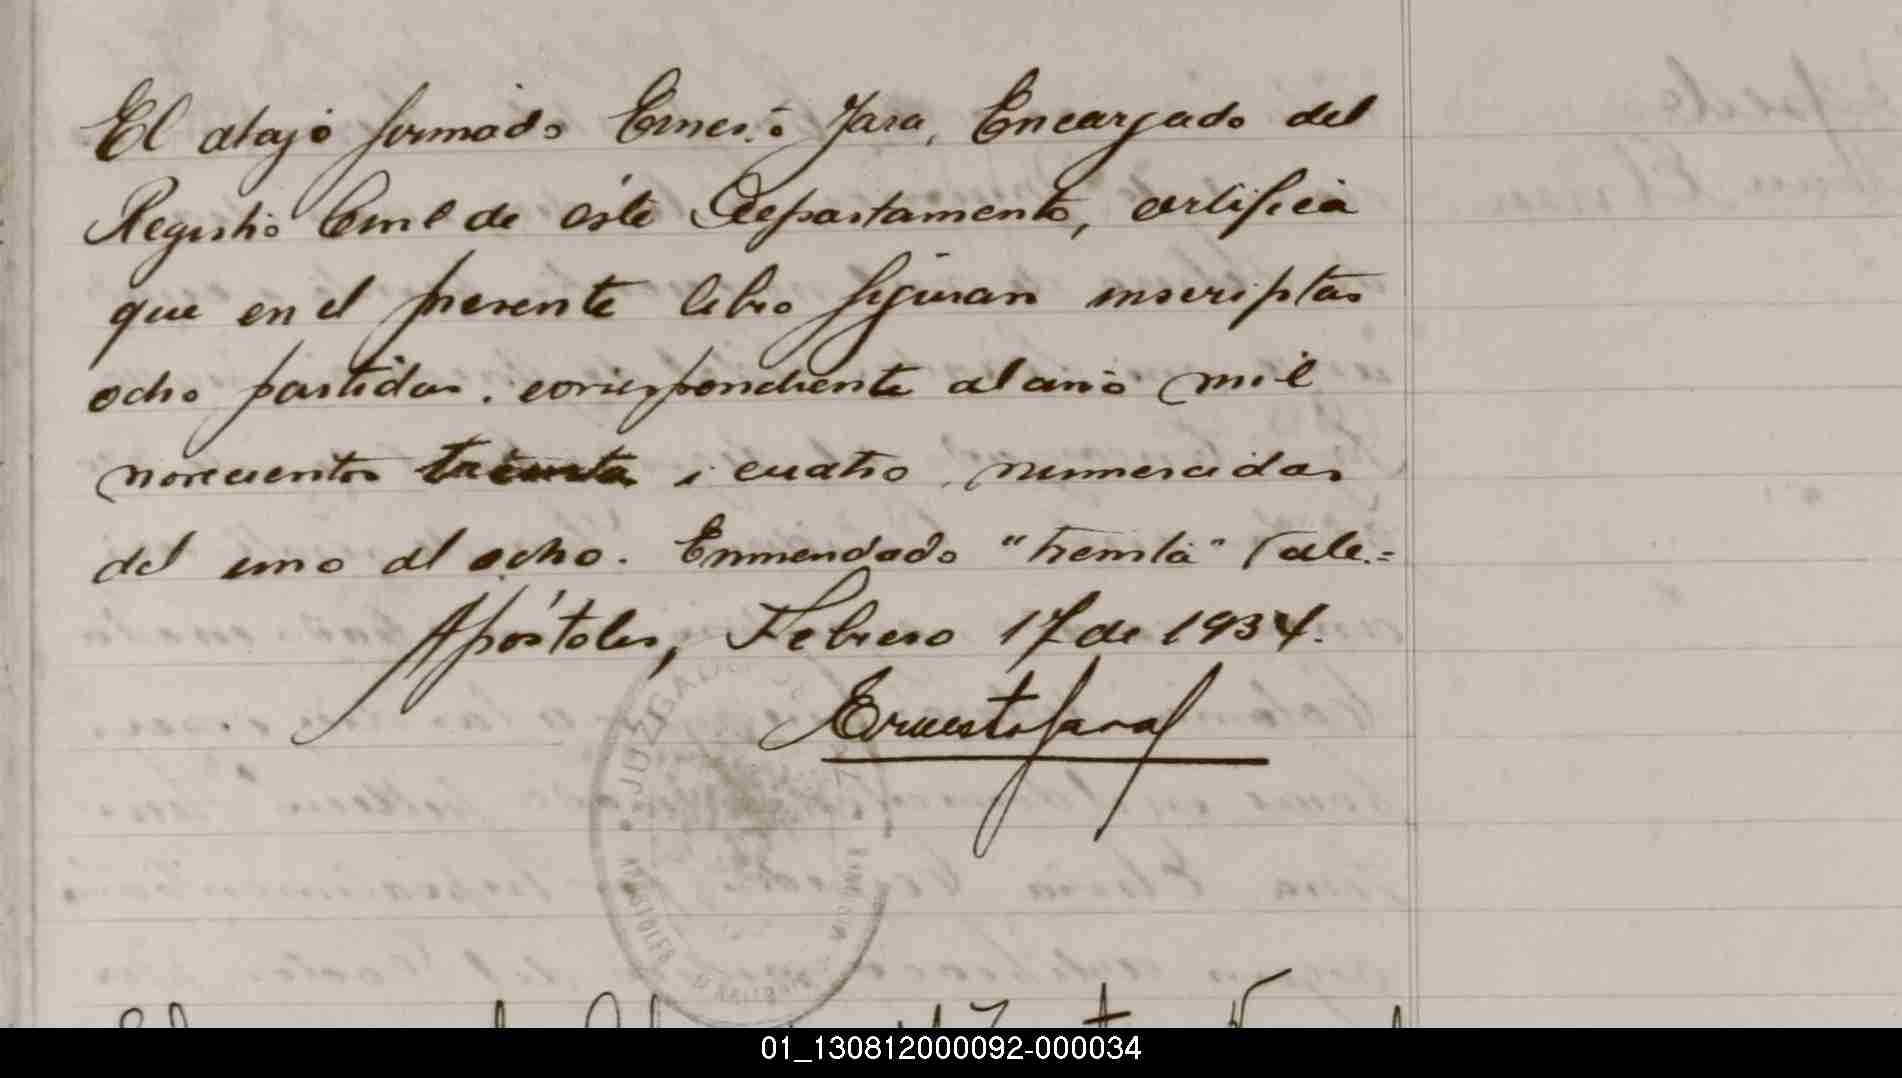 El abajo firmado Ernesto Jara, Encargado del
Registro Civil de éste Departamento, certifica
que en el presente libro figuran inscriptas
ocho partidas, correspondiente al año mil
novecientos treinta i cuatro, numeradas
del uno al ocho. Enmendado "treinta" Vale.=
Apóstoles, Febrero 17 de 1934.
Ernesto Jara
JUZGADO DE PAZ
APOSTOLES
MISIONES
01_130812000092-000034